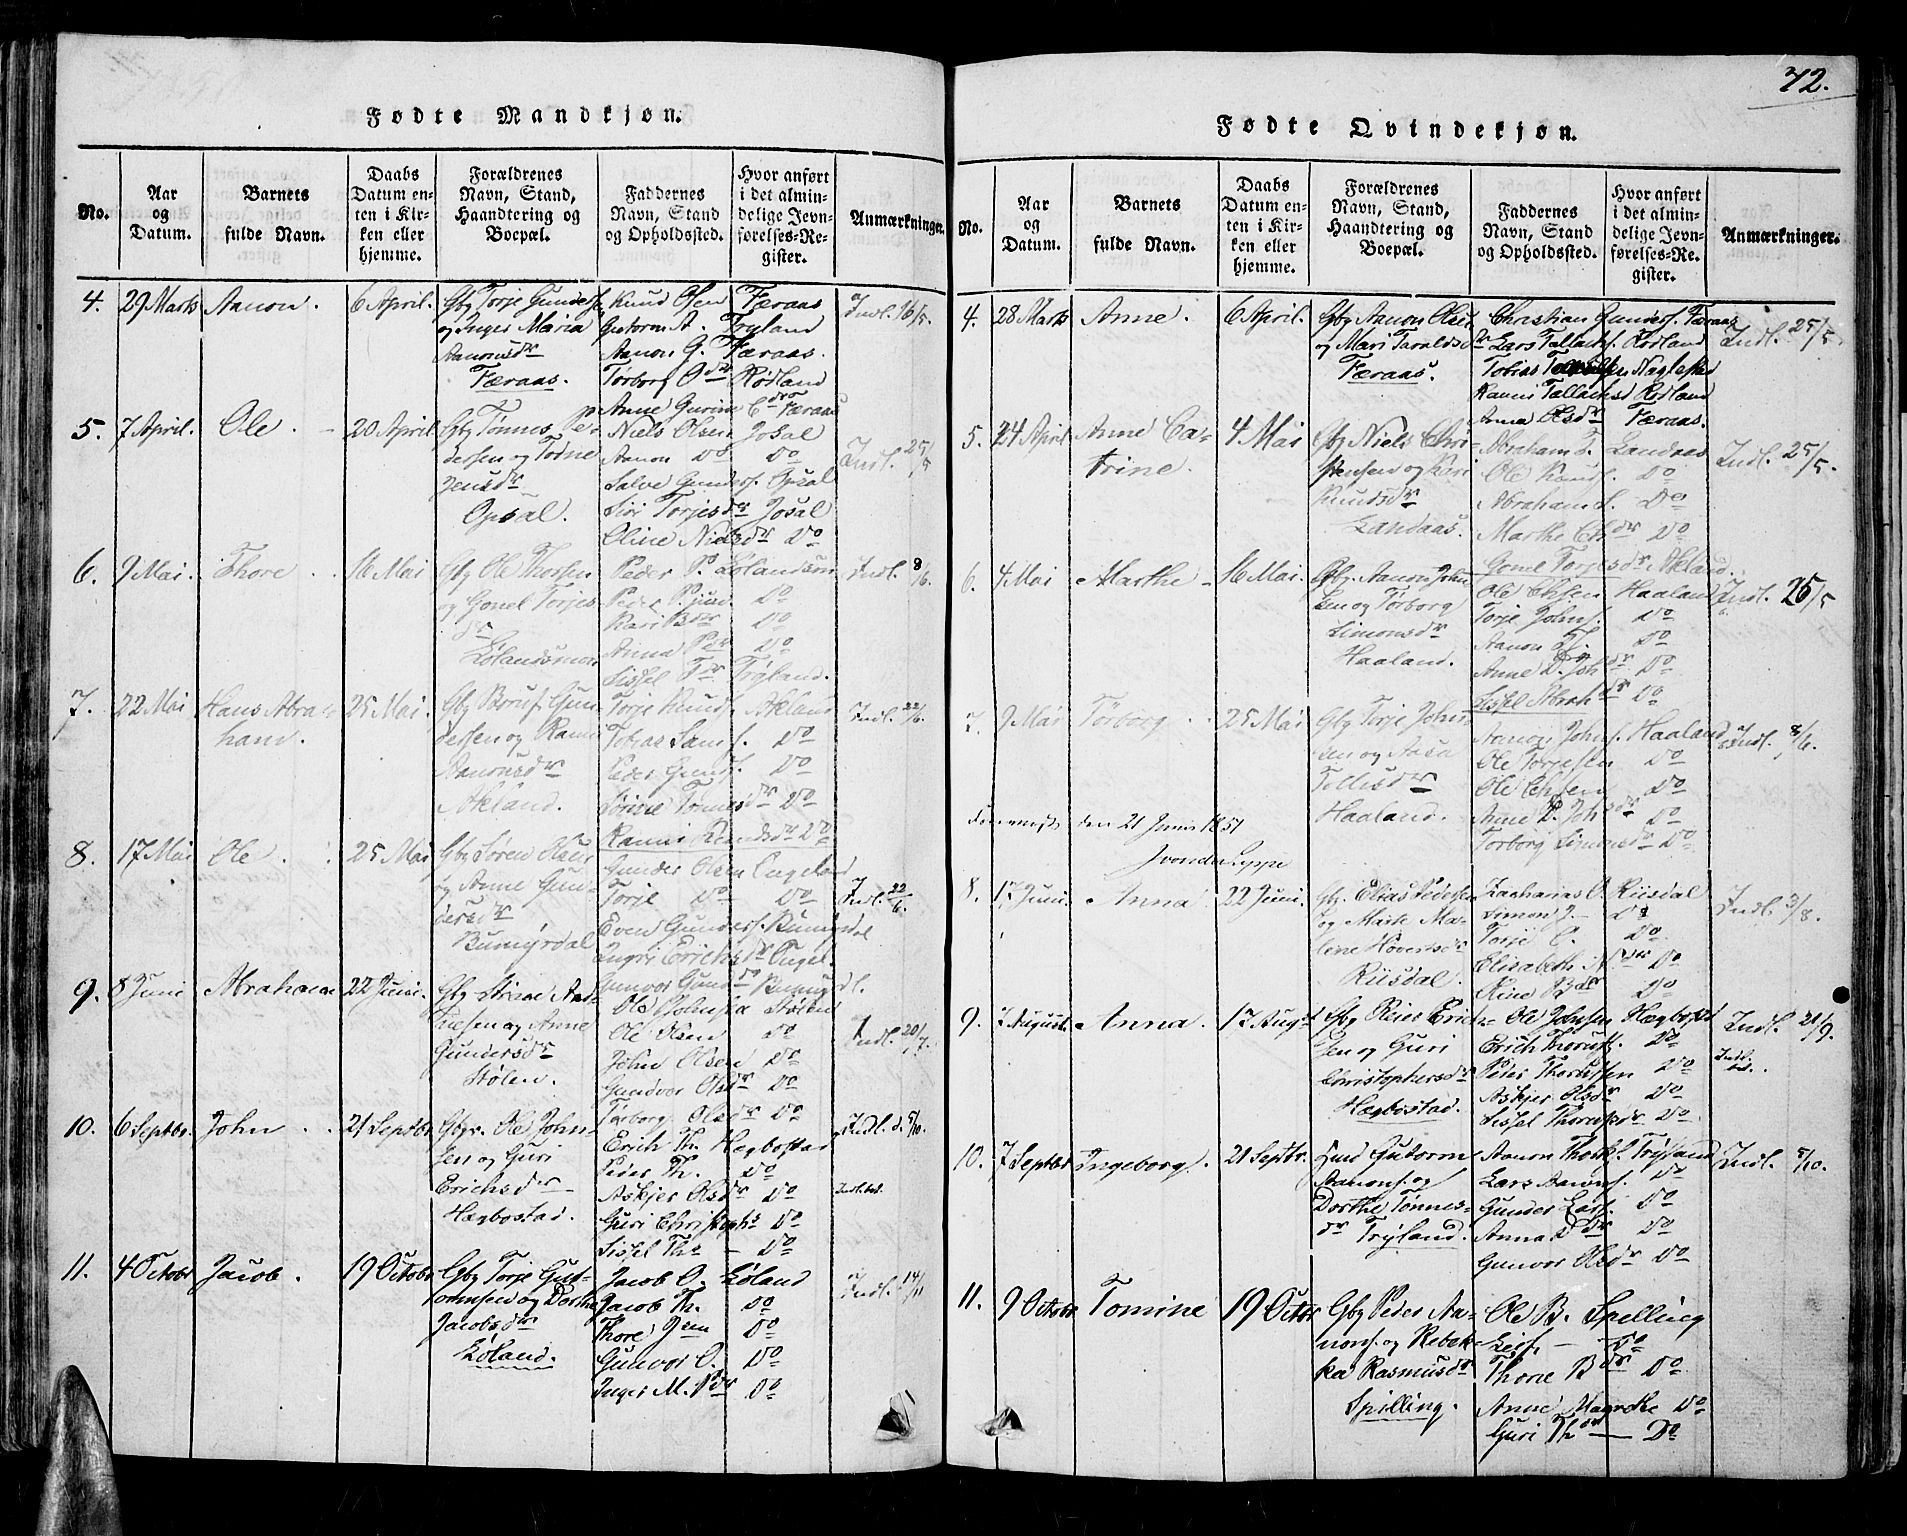 72.
Fødte Mandkjøn.
No.
Aar
og
Datum.
Barnets
fulde Navn.
Daabs
Datum en-
ten i Kir-
ken eller
hjemme.
Forældrenes
Navn, Stand,
Haandtering og
Boepæl.
Faddernes
Navn, Stand
og Opholdssted.
Hvor anført
i det almin-
delige Jevn-
førelses-Re-
gister.
Anmærkninger.
4. 29 Marts Aanon. 6 April.
Gbg Torje Gunders
og Inger Maria
Aanonsdr
Færaas.
Knud Olsen Færaas
Guttorm A. Tryland
Aanon G. Færaas.
Tørborg O dr Rødland
Anne Gurine Færaas
Indl. 16/5.
5. 7 April. Ole. 20 April
Gbg Tønnes Pe-
dersen og Todne
Jensdr
Opsal.
Niels Olsen Josal
Aanon Do Do
Salve Gunders. Opsal
Siri Torjesdr Josal
Oline Nielsdr Do
Indl. 25/5
6. 9 Mai. Thore. 16 Mai
Gbg Ole Thorsen
og Gonel Torjes
dr
Lølandsmon
Peder P. Lølandsmon
Peder P. jun. Do
Kari Do
Anna P Do
Sissel T Tryland.
Indl. 8/6.
7. 22 Mai Hans Abra-
ham. 25 Mai.
Gbg Gun
dersen og
Aanonsdr
Akland.
Torje Knuds. Akland
Tobias Do
Peder Gunds. Do
Sørine Tønnesdr Do
Ranni Do
Indl. 22/6.
8. 17 Mai Ole. 25 Mai
Gbg Søren Olsen
og Anne Gun-
dersdr
Rumyrdal
Gunder Olsen Engeland
Torje Do Do
Even Gunders. Rumyrdal
Ingri Erichsdr Engel.
Gunvor
Indl. 22/6.
9. 8 Juni Abraham 22 Juni.
Gbg
og Anne
Gundersdr
Stølen.
Ole Stølen
Ole Olsen Do
John Olsen Do
Gundvor Olsdr Do
Tørborg Olsdr Do
Indl. 20/7.
10. 6 Septbr. John. 21 Septbr
Gbgr. Ole John-
sen og Guri
Erichsdr
Hægbostad.
Erich Th. Hægbostad
Peder Th. Do
Askjer Olsdr Do
Guri Christophs Do
Sissel Th Do
Indl. d. 5/10.
11. 4 Octobr Jacob. 19 Octobr
Gbg Torje Gut-
tormsen og Dorthe
Jacobsdr
Løland.
Jacob O. Løland
Jacob Th. Do
Thore Do
Gunvor O. Do
Inger M. Do
Indl. 14/11
Fødte Qvindekjøn.
No.
Aar
og
Datum.
Barnets
fulde Navn.
Daabs
Datum en-
ten i Kir-
ken eller
hjemme.
Forældrenes
Navn, Stand,
Haandtering og
Boepæl.
Faddernes
Navn, Stand
og Opholdssted.
Hvor anført
i det almin-
delige Jevn-
førelses-Re-
gister.
Anmærkninger.
4. 28 Marts Anne. 6 April.
Gbg Aanon Olsen
og Mari Taraldsd
Færaas.
Christian Gunders. Færaas
Lars Tallachs. Rødland
Tobias
Ranni Tallachsd Rødland
Anna Olsdr Færaas.
Indl. 25/5.
5. 24 April Anne Ca-
trine. 4 Mai
Gbg Niels Chri-
stensen og Kari
Knudsdr
Landaas.
Abraham T. Landaas
Ole Do
Abraham Do
Marthe Do
Indl. 25/5.
6. 4 Mai Marthe 16 Mai.
Gbg. Aanon John
sen og Tørborg
Simonsdr
Haaland.
Gonel Torjesdr Akland.
Ole Haaland
Torje Johns. Do
Aanon Do
Anne Do
Sissel Abrah dr Do
Indl. 25/5
7. 9 Mai Tørborg 25 Mai
Gbg Torje John-
sen og Aasa
Tollisdr
Haaland.
Aanon Johns. Haaland
Ole Torjesen Do
Ole Do
Anne Do
Torborg Simonsdr Do
Indl. 8/6.
den 21 Junii 1851
8. 17 Juni. Anna 22 Juni.
Gbg. Elias Pedersen
og Marte Ma-
line
Riisdal.
Zacharias O. Riisdal
Simon J. Do
Torje C. Do
Elisabeth N dr Do
Stine Do
Indl. 3/8.
9. 7 August. Anna. 17 Augst
Gbg Reier Erich-
sen og Guri
Christophersdr
Hægbostad.
Ole Johnsen Hægbostad
Erich Do
Peder Do
Askjer Olsdr Do
Sissel Do
Indl. 21/9.
10. 7 Septbr Ingeborg. 21 Septbr.
Gutorm
Aanons. og
Dorthe Tønnes-
dr Tryland.
Aanon Tryland
Lars Aanons. Do
Gunder Lars. Do
Anna D dr Do
Gunvor Olsdr Do
Indl. 5/10.
11. 9 Octobr Tomine 19 Octbr
Gbg Peder Aa-
nons. og Rebek-
ka Rasmusdr
Spilling.
Ole B. Spelling
Leif Do
Thore B Do
Anne Magrethe Do
Guri Th Do